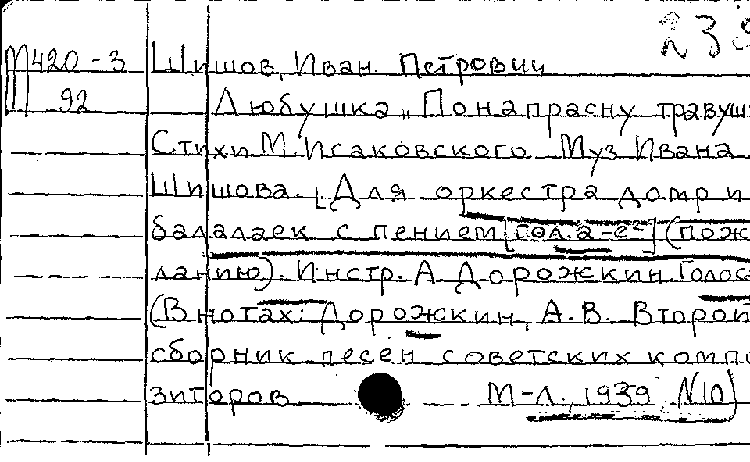 239
М420-3 Шишов, Иван Петрович
92 Любушка „Понапрасну травуш
Стихи М. Исаковского Муз Ивана
Шишова. [Для оркестра домр и
балалаек с пением [гол. a-e²] (пож
ланию). Инстр. А Дорожкин. Голос
(В нотах: Дорожкин, А.В. Второй
сборник песен советских компо
зиторов М-Л., 1939 N10)